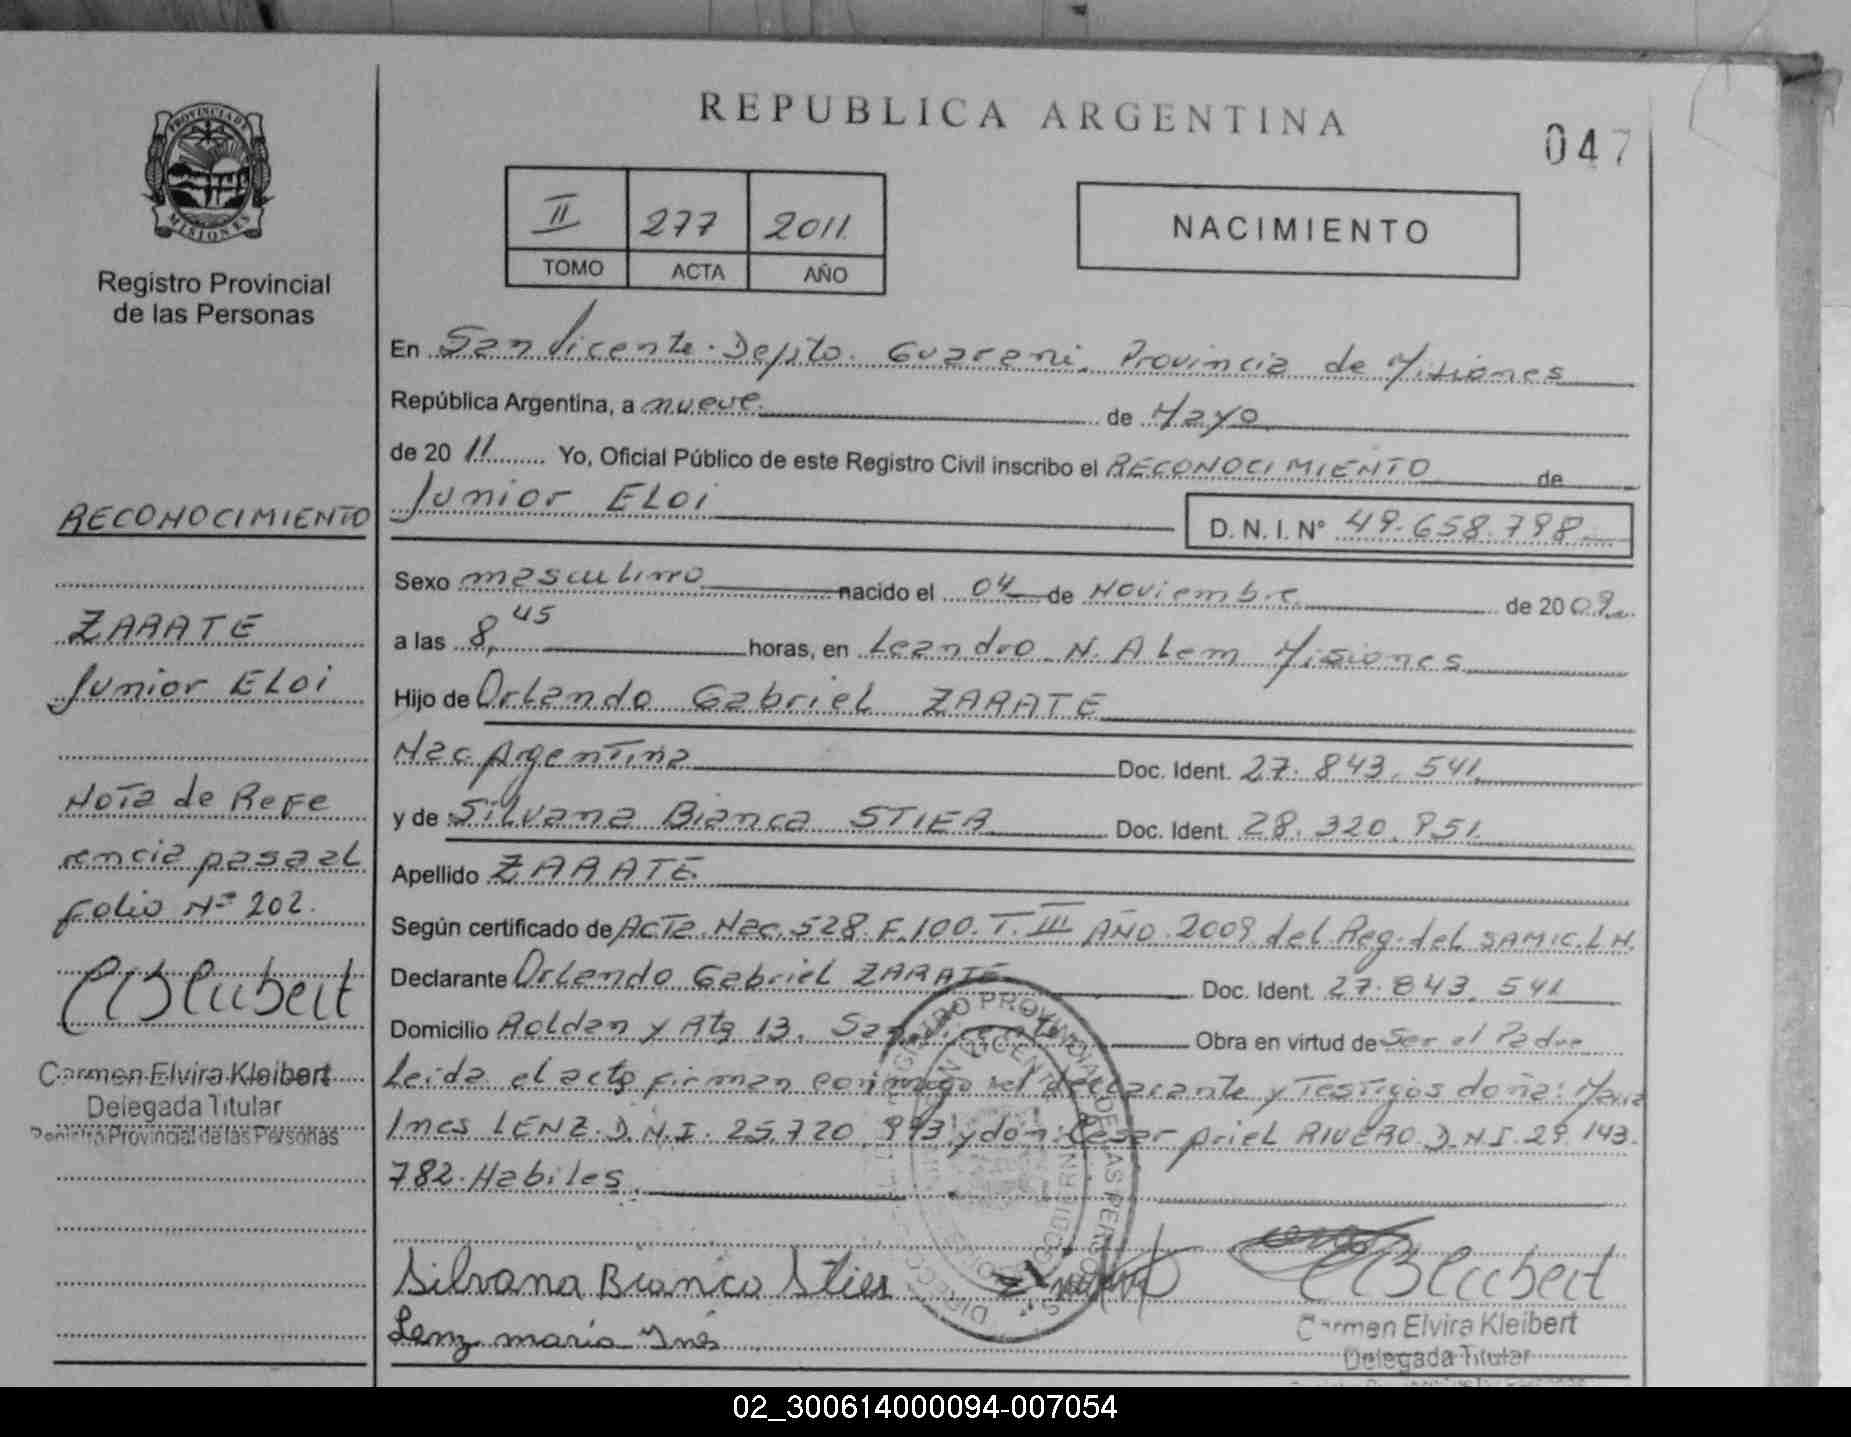 REPUBLICA ARGENTINA
047
PROVINCIA DE
MISIONES
Registro Provincial
de las Personas
II 277 2011
TOMO ACTA AÑO
NACIMIENTO
En San Vicente. Depto. Guarani. Provincia de Misiones
República Argentina, a nueve. de Mayo
de 2011 Yo, Oficial Público de este Registro Civil inscribo el RECONOCIMIENTO de
Junior ELOi
D. N. I. N° 49.658.798
Sexo masculino nacido el 04 de Noviembre de 2009
a las 8,45 horas, en Leandro N. Alem Misiones
Hijo de Orlando Gabriel ZARATE
Nac. Argentina Doc. Ident. 27.843.541
y de Silvana Bianca STIER Doc. Ident. 28.320.951
Apellido ZARATE
Según certificado de Acta Nac. 528. F. 100. T. III AÑO 2009 del Reg. del SAMIC. L N.
Declarante Orlando Gabriel ZARATE Doc. Ident. 27.843.541
Domicilio Roldan y Rta 13. San Vicente Obra en virtud de Ser el Padre
Leida el acta firman conmigo el declarante y Testigos doña: Maria
Ines LENZ. D.N.I. 25.720.993 y don: Cesar Ariel RIVERO. D.N.I. 29.143.
782. Habiles
Silvana Bianca Stier
Lenz maria Inés
Carmen Elvira Kleibert
Delegada Titular
RECONOCIMIENTO
ZARATE
Junior ELOi
Nota de Refe
rencia pasa al
folio Nº 202.
Carmen Elvira Kleibert
Delegada Titular
Registro Provincial de las Personas
02_300614000094-007054